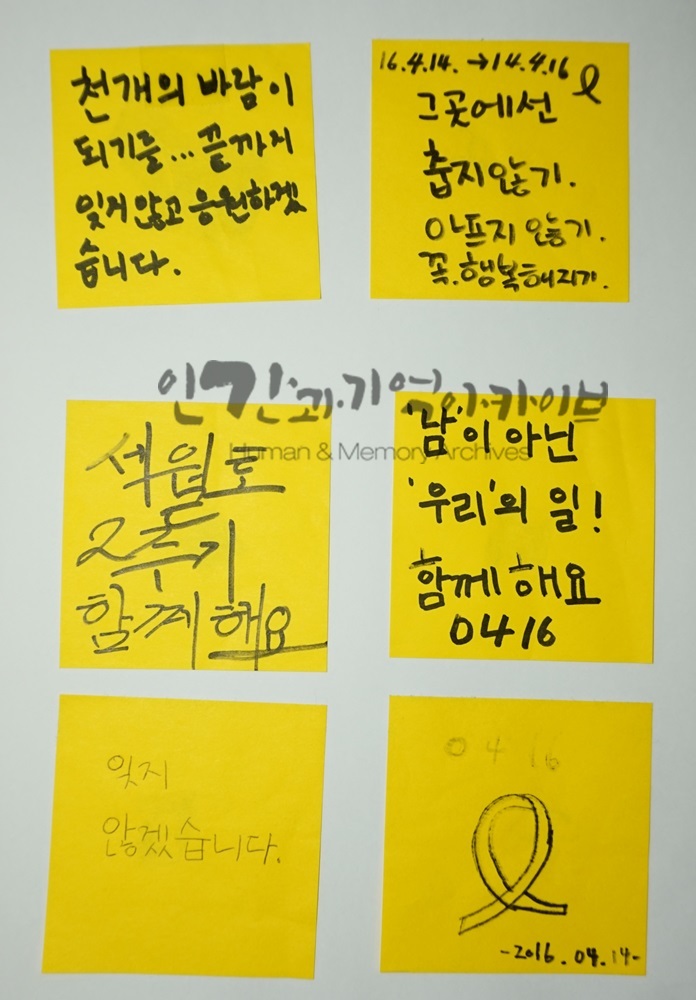 천개의 바람이
되기를...끝까지
잊지않고 응원하겠
습니다.
16.4.14. →14.4.16
그곳에선
춥지않기.
아프지 않기.
꼭.행복해지기.
인간과.기억아카이브
Human & Memory Archives
세월호
2주기
함께해요
'남'이 아닌
'우리'의 일!
함께해요
0416
잊지
않겠습니다.
0416
-2016.04.14-